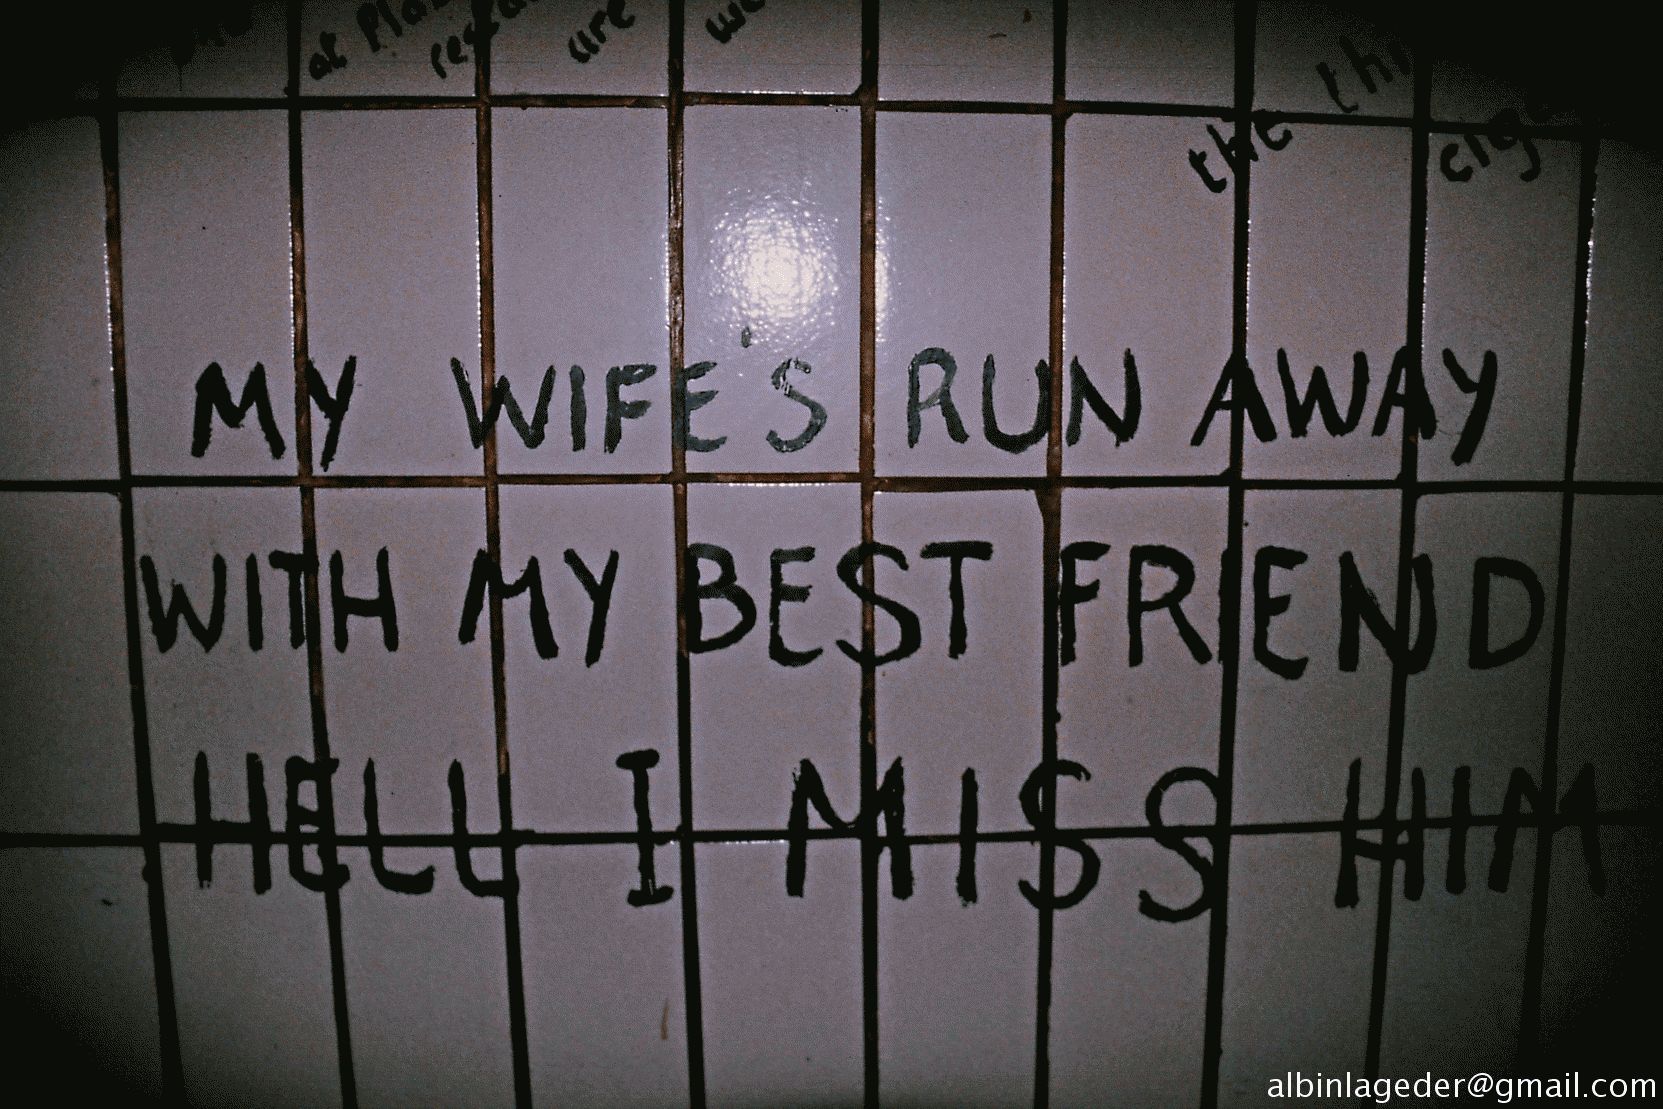 at
are
the
MY WIFE'S RUN AWAY
WITH MY BEST FRIEND
HELL I MISS HIM
albinlageder@gmail.com